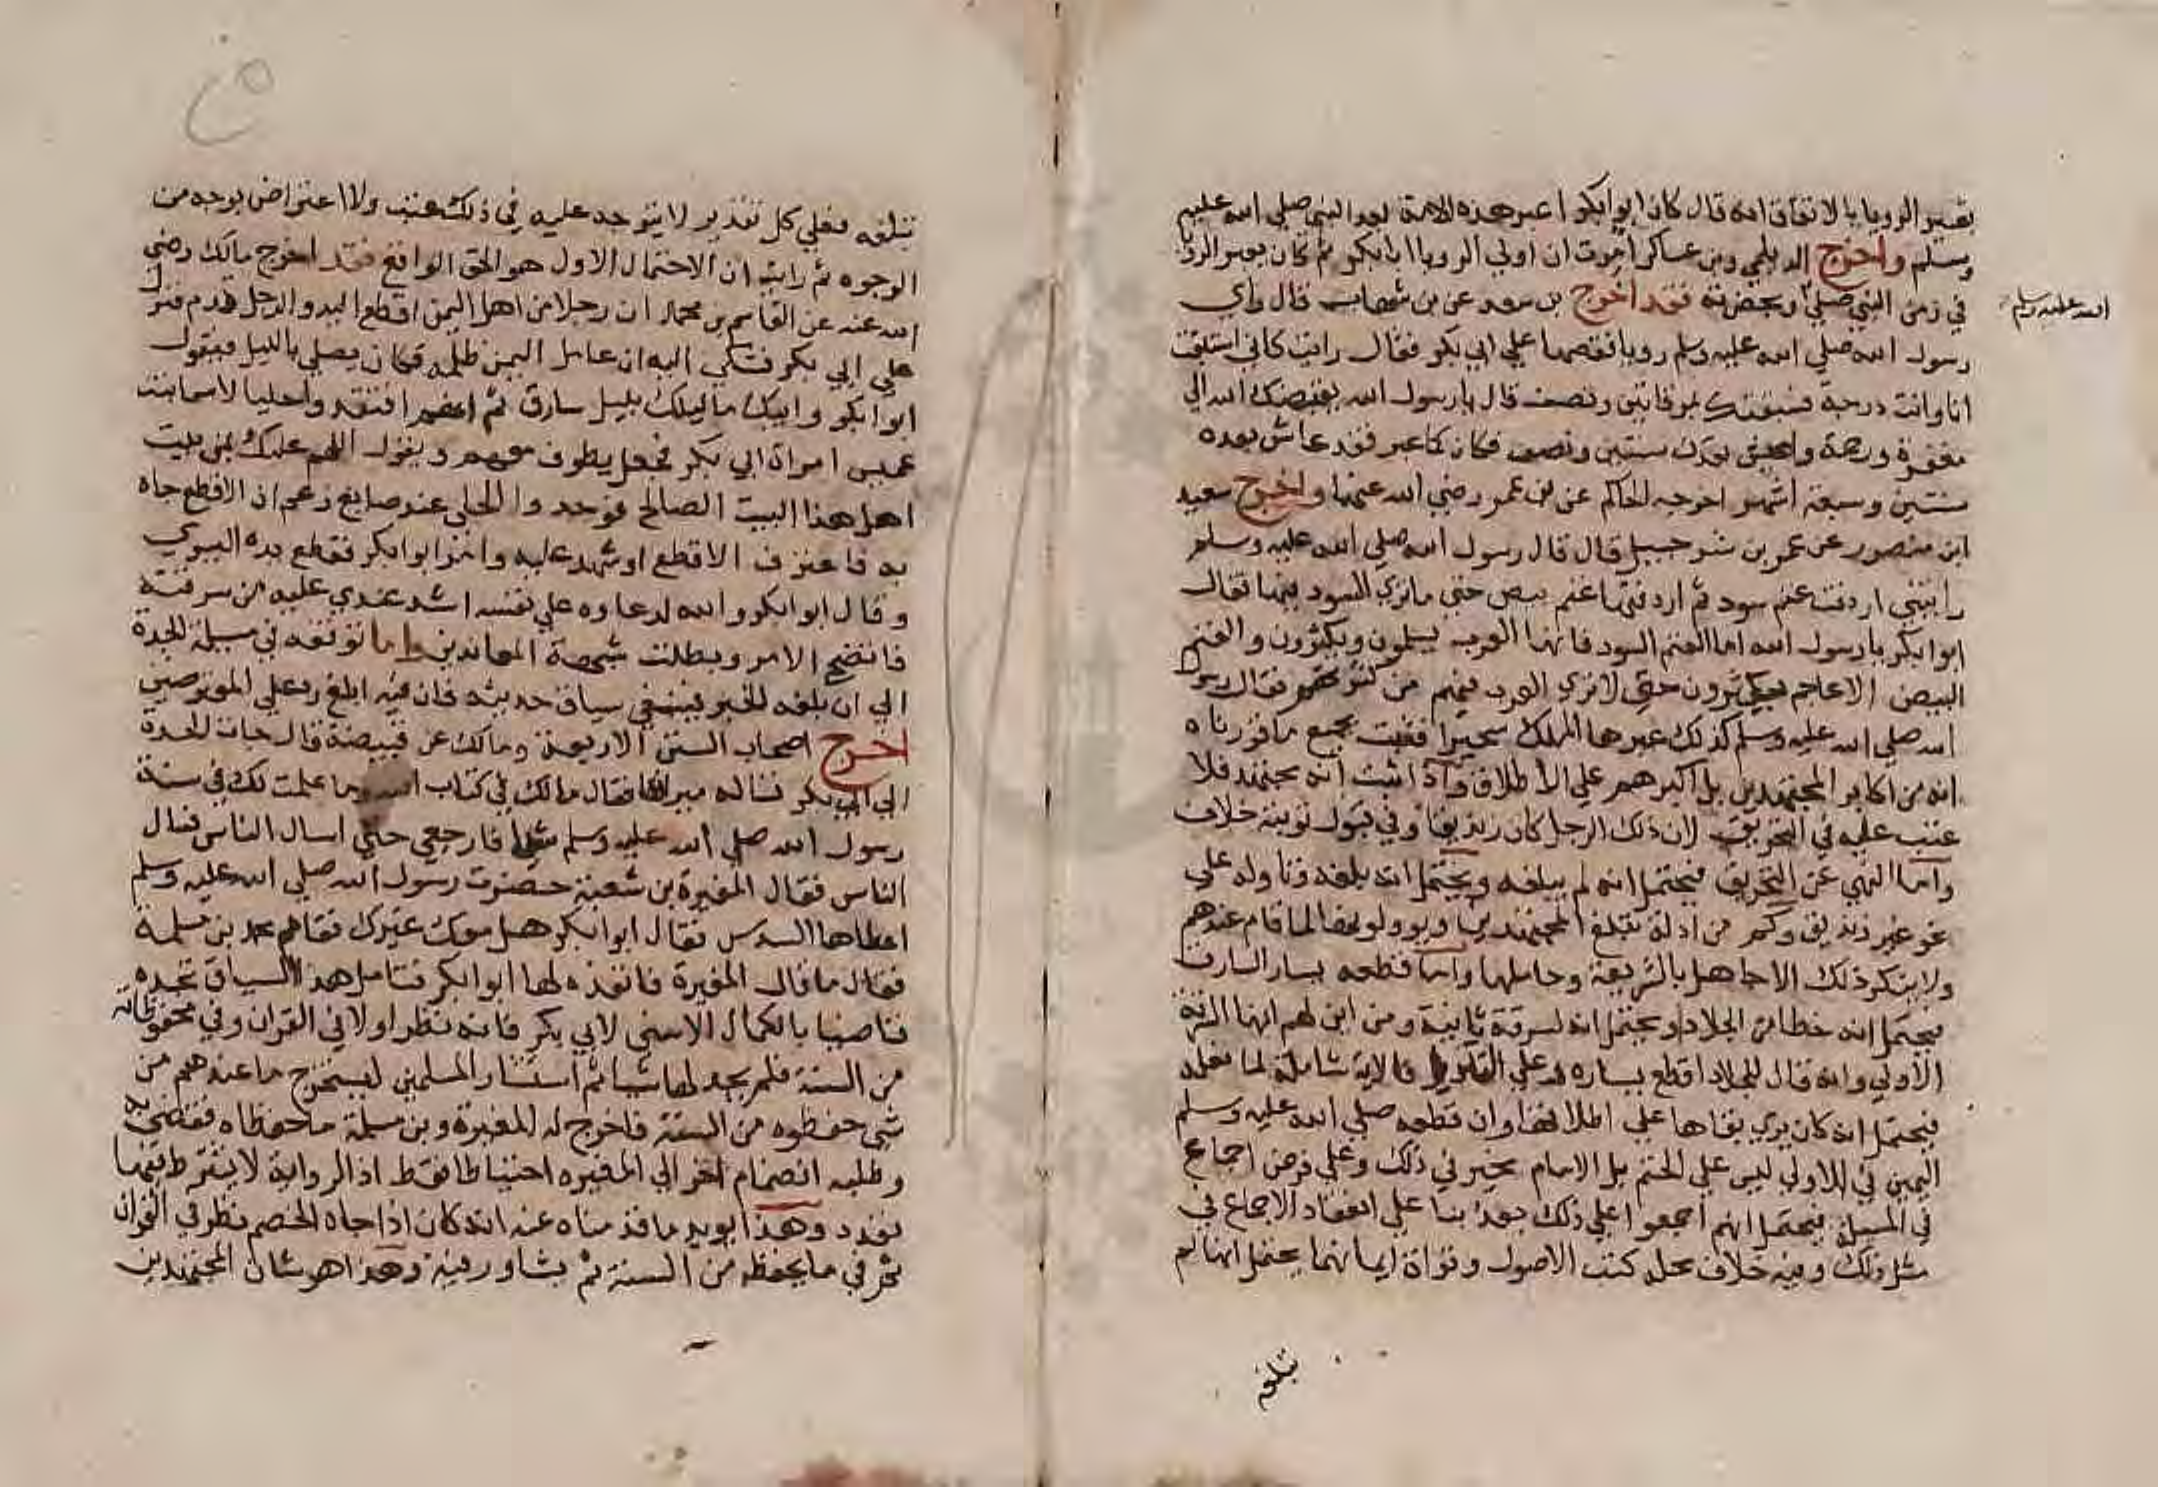 تعبير الرويا بالاتفاق انه قال كان ابوابكر اعبر هذه الامة بعد النبي صلي الله عليه
وسلم واخرج الديلمي وبن عساكر امرت ان اولي الرويا ابابكر ثم كان يعبر الرويا
في زمن النبي صلي وبحضرته فقد اخرج بن سعد عن بن شهاب قال راي
الله عليه وسلم
رسول الله صلي الله عليه وسلم رويا فقصها علي ابي بكر فقال رايت كاني استبقت
انا وانت درجة فسبقتك بمرقاتين ونصف قال يارسول الله يقبضك الله الي
مغفرة ورحمة واعيش بعدك سنتين ونصف فكان كما عبر فقد عاش بعده
سنتين وسبعة اشهر اخرجه الحاكم عن بن عمر رضي الله عنهما واخرج سعيد
ابن منصور عن عمر بن شرحبيل قال قال رسول الله صلي الله عليه وسلم
رايتني اردفت غنم سود ثم اردفتها غنم بيض حتي ماتري السود فيها فقال
ابوابكر يارسول الله اما الغنم السود فانها العرب يسلمون ويكثرون والغنم
البيض الاعاجم يسلمون حتي لاتري العرب فيهم من كثرتهم فقال رسول
الله صلي الله عليه وسلم كذلك عبرها الملك سحيرا فثبت بجميع ماقررناه
انه من اكابر المجتهدين بل اكبرهم علي الاطلاق واذا ثبت انه مجتهد فلا
عتب عليه في التحريق لان ذلك الرجل كان زنديقا وفي قبول توبته خلاف
واما النهي عن التحريق فيحتمل انه لم يبلغه ويحتمل انه بلغه وتاوله علي
نحو غير زنديق وكم من ادلة تبلغ المجتهدين ويوولونها لما قام عندهم
ولاينكر ذلك الا جاهل بالشريعة وحاملها واما قطعه يسار السارق
فيحتمل انه خطا من الجلاد ويحتمل انه لسرقة ثانية ومن اين لهم انها السرقة
الاولي وانه قال للجلاد اقطع يساره وعلي التنزل فالاية شاملة لما فعله
فيحتمل انه كان يري بقاها علي اطلاقها وان قطعه صلي الله عليه وسلم
اليمين في الاولي ليس علي الحتم بل الامام مخير في ذلك وعلي فرض اجماع
في المسيلة فيحتمل انهم اجمعوا علي ذلك بعده بنا علي انعقاد الاجماع في
مثل ذلك وفيه خلاف محله كتب الاصول وقراة ايمانهما يحتمل انها لم
تبلغه
تبلغه فعلي كل تقدير لايتوجه عليه في ذلك عتب ولا اعتراض بوجه من
الوجوه ثم رايت ان الاحتمال الاول هو الحق الواقع فقد اخرج مالك رضي
الله عنه عن القاسم بن محمد ان رجلا من اهل اليمن اقطع اليد والرجل قدم فنزل
علي ابي بكر فشكي اليه ان عامل اليمن ظلمه فكان يصلي بالليل فيقول
ابوابكر وابيك ماليلك بليل سارق ثم انهم افتقدوا حليا لاسما بنت
عميس امراة ابي بكر فجعل يطوف معهم ويقول اللهم عليك بمن بيت
اهل هذا البيت الصالح فوجدوا الحلي عند صايغ زعم ان الاقطع جاه
به فاعترف الاقطع او شهد عليه وامر ابوابكر فقطع يده اليسري
وقال ابوابكر والله لدعاوه علي نفسه اشد عندي عليه من سرقته
فاتضح الامر وبطلت شبهة المعاندين واما توقفه في مسيلة الجدة
الي ان بلغه الخبر فينبغي سياق حديثه فان فيه ابلغ رد علي المعترضين
اخرج اصحاب السنن الاربعة ومالك عن قبيصة قال جات الجدة
الي ابي بكر تساله ميراثها فقال مالك في كتاب الله وما علمت لك في سنة
رسول الله صلي الله عليه وسلم شيا فارجعي حتي اسال الناس فسال
الناس فقال المغيرة بن شعبة حضرت رسول الله صلي الله عليه وسلم
اعطاها السدس فقال ابوابكر هل معك غيرك فقام محمد بن مسلمة
فقال ماقال المغيرة فانفذه لها ابوابكر فتامل هذا السياق تجده
قاضيا بالكمال الاسني لابي بكر فانه نظر اولا في القران وفي محفوظاته
من السنة فلم يجد لها شيا ثم استشار المسلمين ليستخرج ماعندهم من
شي حفظوه من السنة فاخرج له المغيرة وبن مسلمة ماحفظاه فقضي به
وطلبه انضمام اخر الي المغيره احتياطا فقط اذ الرواية لايشترط فيها
تعدد وهذا يويد ماقدمناه عنه انه كان اذا جاه الخصم نظر في القران
ثم في مايحفظه من السنة ثم يشاور فيه وهذا هو شان المجتهدين